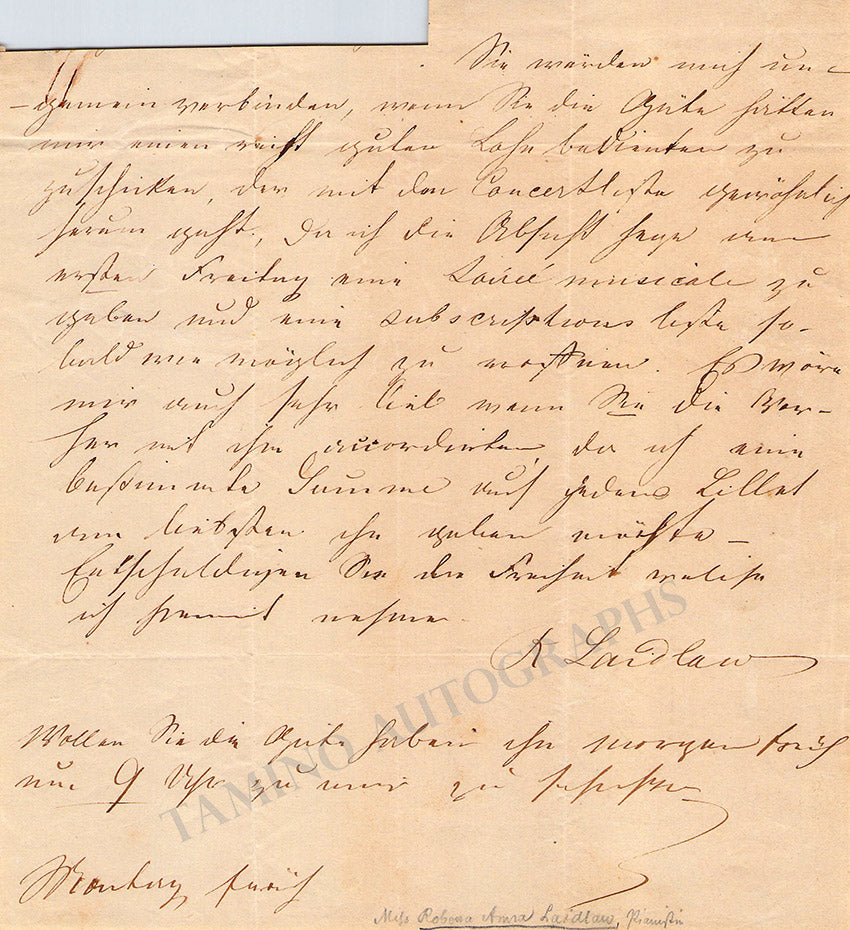 Sie würden mich un-
-gemein verbinden, wenn Sie die Güte hätten
mir einen recht guten Lohnbedienten zu
zuschicken, der mit den Concertliste gewöhnlich
herum geht, da ich die Absicht hege am
ersten Freitag eine Soirée musicale zu
geben und eine subscriptions liste so-
bald wie möglich zu . Es wäre
mir auch sehr lieb wenn Sie die Vor-
her mit ihm accordirten, da ich eine
bestimmte Summe auf jedes Billet
am liebsten ihm geben möchte –
Entschuldigen Sie die Freiheit welche
ich hiermit nehme.
R Laidlaw
Wollen Sie die Güte haben ihn morgen früh
um 9 Uhr zu mir zu schicken
Montag früh
Miss Robena Anna Laidlaw, Pianistin
TAMINO AUTOGRAPHS